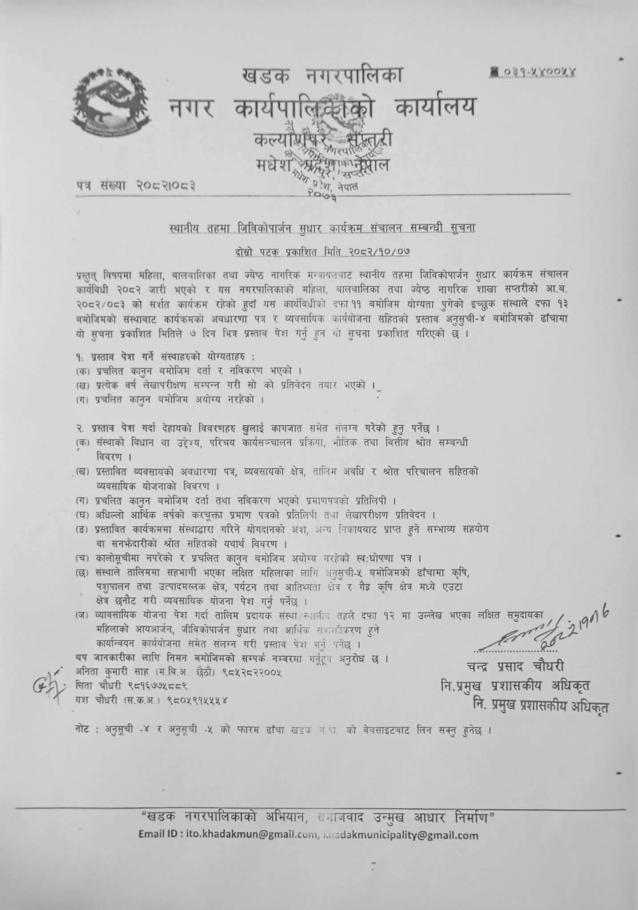 खडक नगरपालिका
०३१-५४००५४
नगर कार्यपालिकाको कार्यालय
कल्याणपुर, सप्तरी
मधेश प्रदेश, नेपाल
पत्र संख्या २०८२।०८३
स्थानीय तहमा जिविकोपार्जन सुधार कार्यक्रम संचालन सम्बन्धी सूचना
दोस्रो पटक प्रकाशित मिति २०८२/१०/०७
प्रस्तुत् विषयमा महिला, बालबालिका तथा ज्येष्ठ नागरिक मन्त्रालयबाट स्थानीय तहमा जिविकोपार्जन सुधार कार्यक्रम संचालन
कार्यविधी २०८२ जारी भएको र यस नगरपालिकाको महिला, बालबालिका तथा ज्येष्ठ नागरिक शाखा सप्तरीको आ.ब.
२०८२/०८३ को सर्शत कार्यक्रम रहेको हुदाँ यस कार्यविधीको दफा ११ बमोजिम योग्यता पुगेको इच्छुक संस्थाले दफा १३
बमोजिमको संस्थाबाट कार्यक्रमको अवधारणा पत्र र व्यवसायिक कार्ययोजना सहितको प्रस्ताव अनुसुची-४ बमोजिमको ढाँचामा
यो सुचना प्रकाशित मितिले ७ दिन भित्र प्रस्ताव पेश गर्नु हुन यो सुचना प्रकाशित गरिएको छ ।
१. प्रस्ताव पेश गर्ने संस्थाहरुको योग्यताहरु :
(क) प्रचलित कानुन बमोजिम दर्ता र नविकरण भएको ।
(ख) प्रत्येक बर्ष लेखापरीक्षण सम्पन्न गरी सो को प्रतिवेदन तयार भएको ।
(ग) प्रचलित कानुन बमोजिम अयोग्य नरहेको ।
२. प्रस्ताव पेश गर्दा देहायको विवरणहरु खुलाई कागजात समेत संलग्न गरेको हुनु पर्नेछ ।
(क) संस्थाको विधान वा उद्देश्य, परिचय कार्यसञ्चालन प्रक्रिया, भौतिक तथा वित्तीय श्रोत सम्बन्धी
विवरण ।
(ख) प्रस्तावित व्यवसायको अवधारणा पत्र, व्यवसायको क्षेत्र, तालिम अवधि र श्रोत परिचालन सहितको
व्यवसायिक योजनाको विवरण ।
(ग) प्रचलित कानुन बमोजिम दर्ता तथा नविकरण भएको प्रमाणपत्रको प्रतिलिपी ।
(घ) अघिल्लो आर्थिक वर्षको करचूक्ता प्रमाण पत्रको प्रतिलिपी तथा लेखापरीक्षण प्रतिवेदन ।
(ङ) प्रस्तावित कार्यक्रममा संस्थाद्धारा गरिने योगदानको अंश, अन्य निकायबाट प्राप्त हुने सम्भाव्य सहयोग
वा सनभेदारीको श्रोत सहितको यथार्थ विवरण ।
(च) कालोसूचीमा नपरेको र प्रचलित कानुन बमोजिम अयोग्य नरहेको स्व:घोषणा पत्र ।
(छ) संस्थाले तालिममा सहभागी भएका लक्षित महिलाका लागि अनुसुची-५ बमोजिमको ढाँचामा कृषि,
पशुपालन तथा उत्पादमलक क्षेत्र, पर्यटन तथा आतिथ्यता क्षेत्र र गैह्र कृषि क्षेत्र मध्ये एउटा
क्षेत्र छनौट गरी व्यवसायिक योजना पेश गर्नु पर्नेछ ।
(ज) व्यावसायिक योजना पेश गर्दा तालिम प्रदायक संस्था/स्थानीय तहले दफा १२ मा उल्लेख भएका लक्षित समुदायका
महिलाको आयआर्जन, जीविकोपार्जन सुधार तथा आर्थिक सशक्तीकरण हुने
कार्यान्वयन कार्ययोजना समेत संलग्न गरी प्रस्ताव पेश गर्नु पर्नेछ ।
थप जानकारीका लागि निमन बमोजिमको सम्पर्क नम्बरमा गर्नुहुन अनुरोध छ ।
अनिता कुमारी साह (म.वि.अ. छैठौं) ९८५२८२२००५
सिता चौधरी ९८१६७७५८८९
यश चौधरी (स.क.अ.) ९८०५९१५५५४
चन्द्र प्रसाद चौधरी
नि.प्रमुख प्रशासकीय अधिकृत
नि. प्रमुख प्रशासकीय अधिकृत
नोट : अनुसूची -४ र अनुसूची -५ को फारम ढाँचा खडक न.पा. को बेवसाइटबाट लिन सक्नु हुनेछ ।
"खडक नगरपालिकाको अभियान, समाजवाद उन्मुख आधार निर्माण"
Email ID : ito.khadakmun@gmail.com, khadakmunicipality@gmail.com